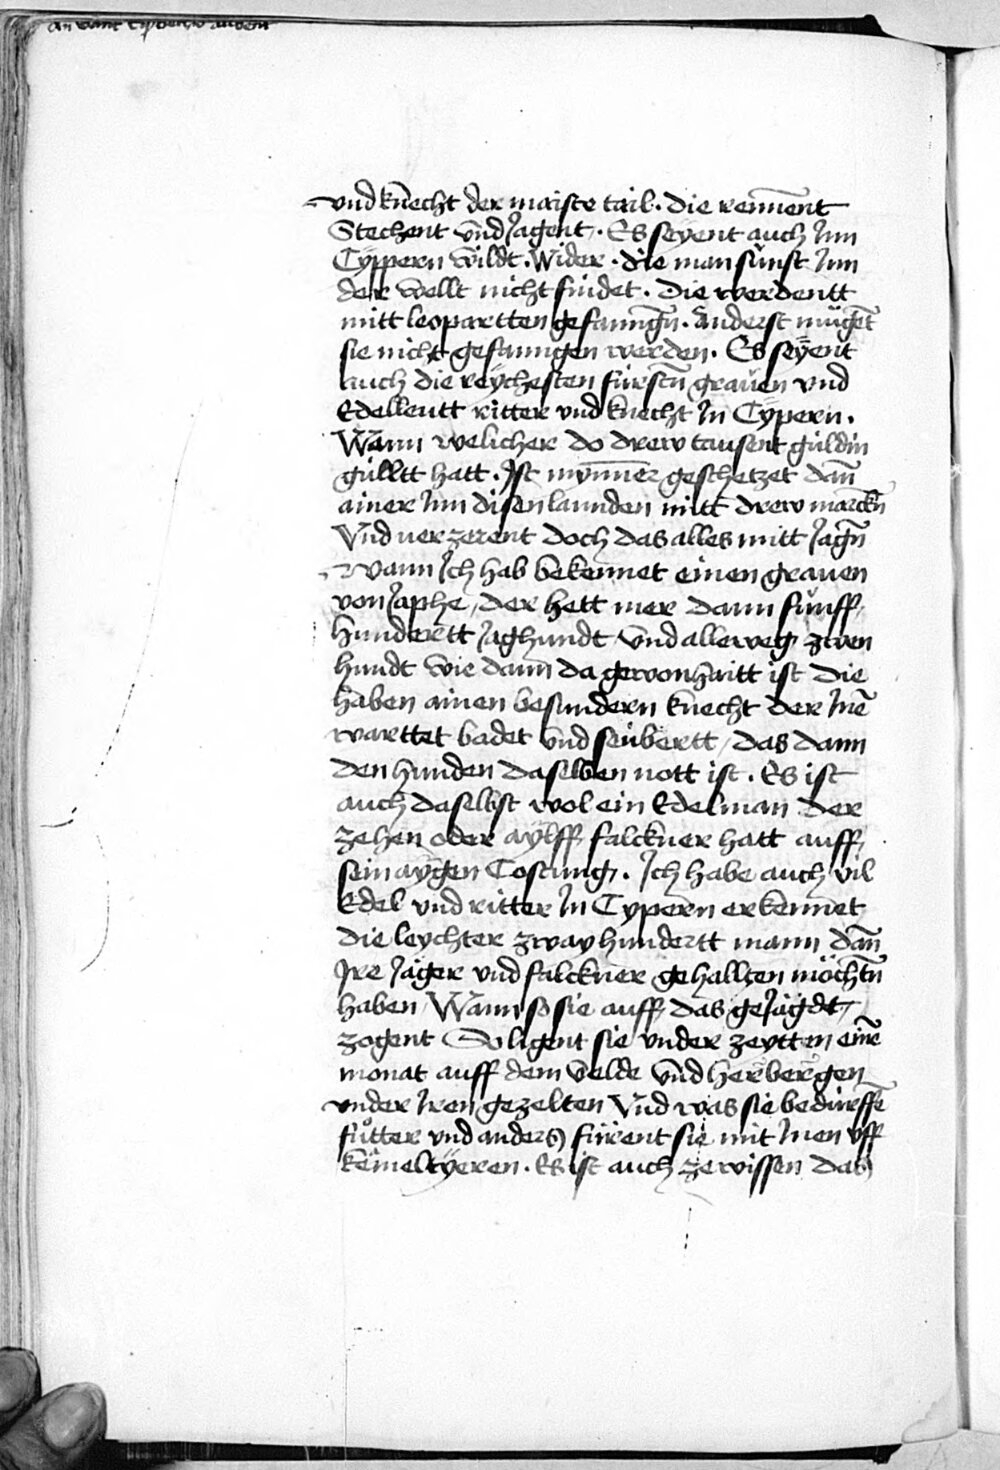 vnd knecht der maiste tail · die rennent
Stechent vnd Jagent · Es seyent auch Jnn
Cÿppern wildt · Wider · die man sunst Jnn
der wellt nicht findet · die werdentt
mitt leopartten gefanngñ · Anderst mugẽt
sie nicht gefanngen werden · Es seÿent
auch die reÿchesten fürstñ grauen vnd
Edelleutt ritter vnd knecht Jn Cÿpern ·
Wann welicher do drew tausent guldin
gülltt hatt · Jst mynner geschetzet dañ
ainer Jnn disen lannden mitt drew marckñ
Vnd uerzerent doch das alles mitt Jagñ
wann Jch hab bekennet einen grauen
von Japhe / der hett mer dann fünff
hundertt Jaghundt vnd allweg zwen
hundt wie dann da gewonhaitt ist die
haben ainen besundern knecht der Jnẽ
warttet badet vnd seubertt / das dann
den hunden daselben nott ist · Es ist
auch daselbst wol ein Edelman der
zehen oder aylff falckner hatt auff
sein aÿgen Costung · Jch habe auch vil
Edel vnd ritter Jn Cypern erkennet
die leychter zway hundertt mann dañ
Jre Jäger vnd falckner gehallten möchtñ
haben Wann so sie auff das geJägdt
zogent So ligent sie vnder zeytten einẽ
monat auff dem velde vnd herbergen
vnder Jren gezelten Vnd was sie bedurffẽ
fůtter vnd anders fürent sie mit Jnen vff
kemeltÿeren · Es ist auch ze wissen das